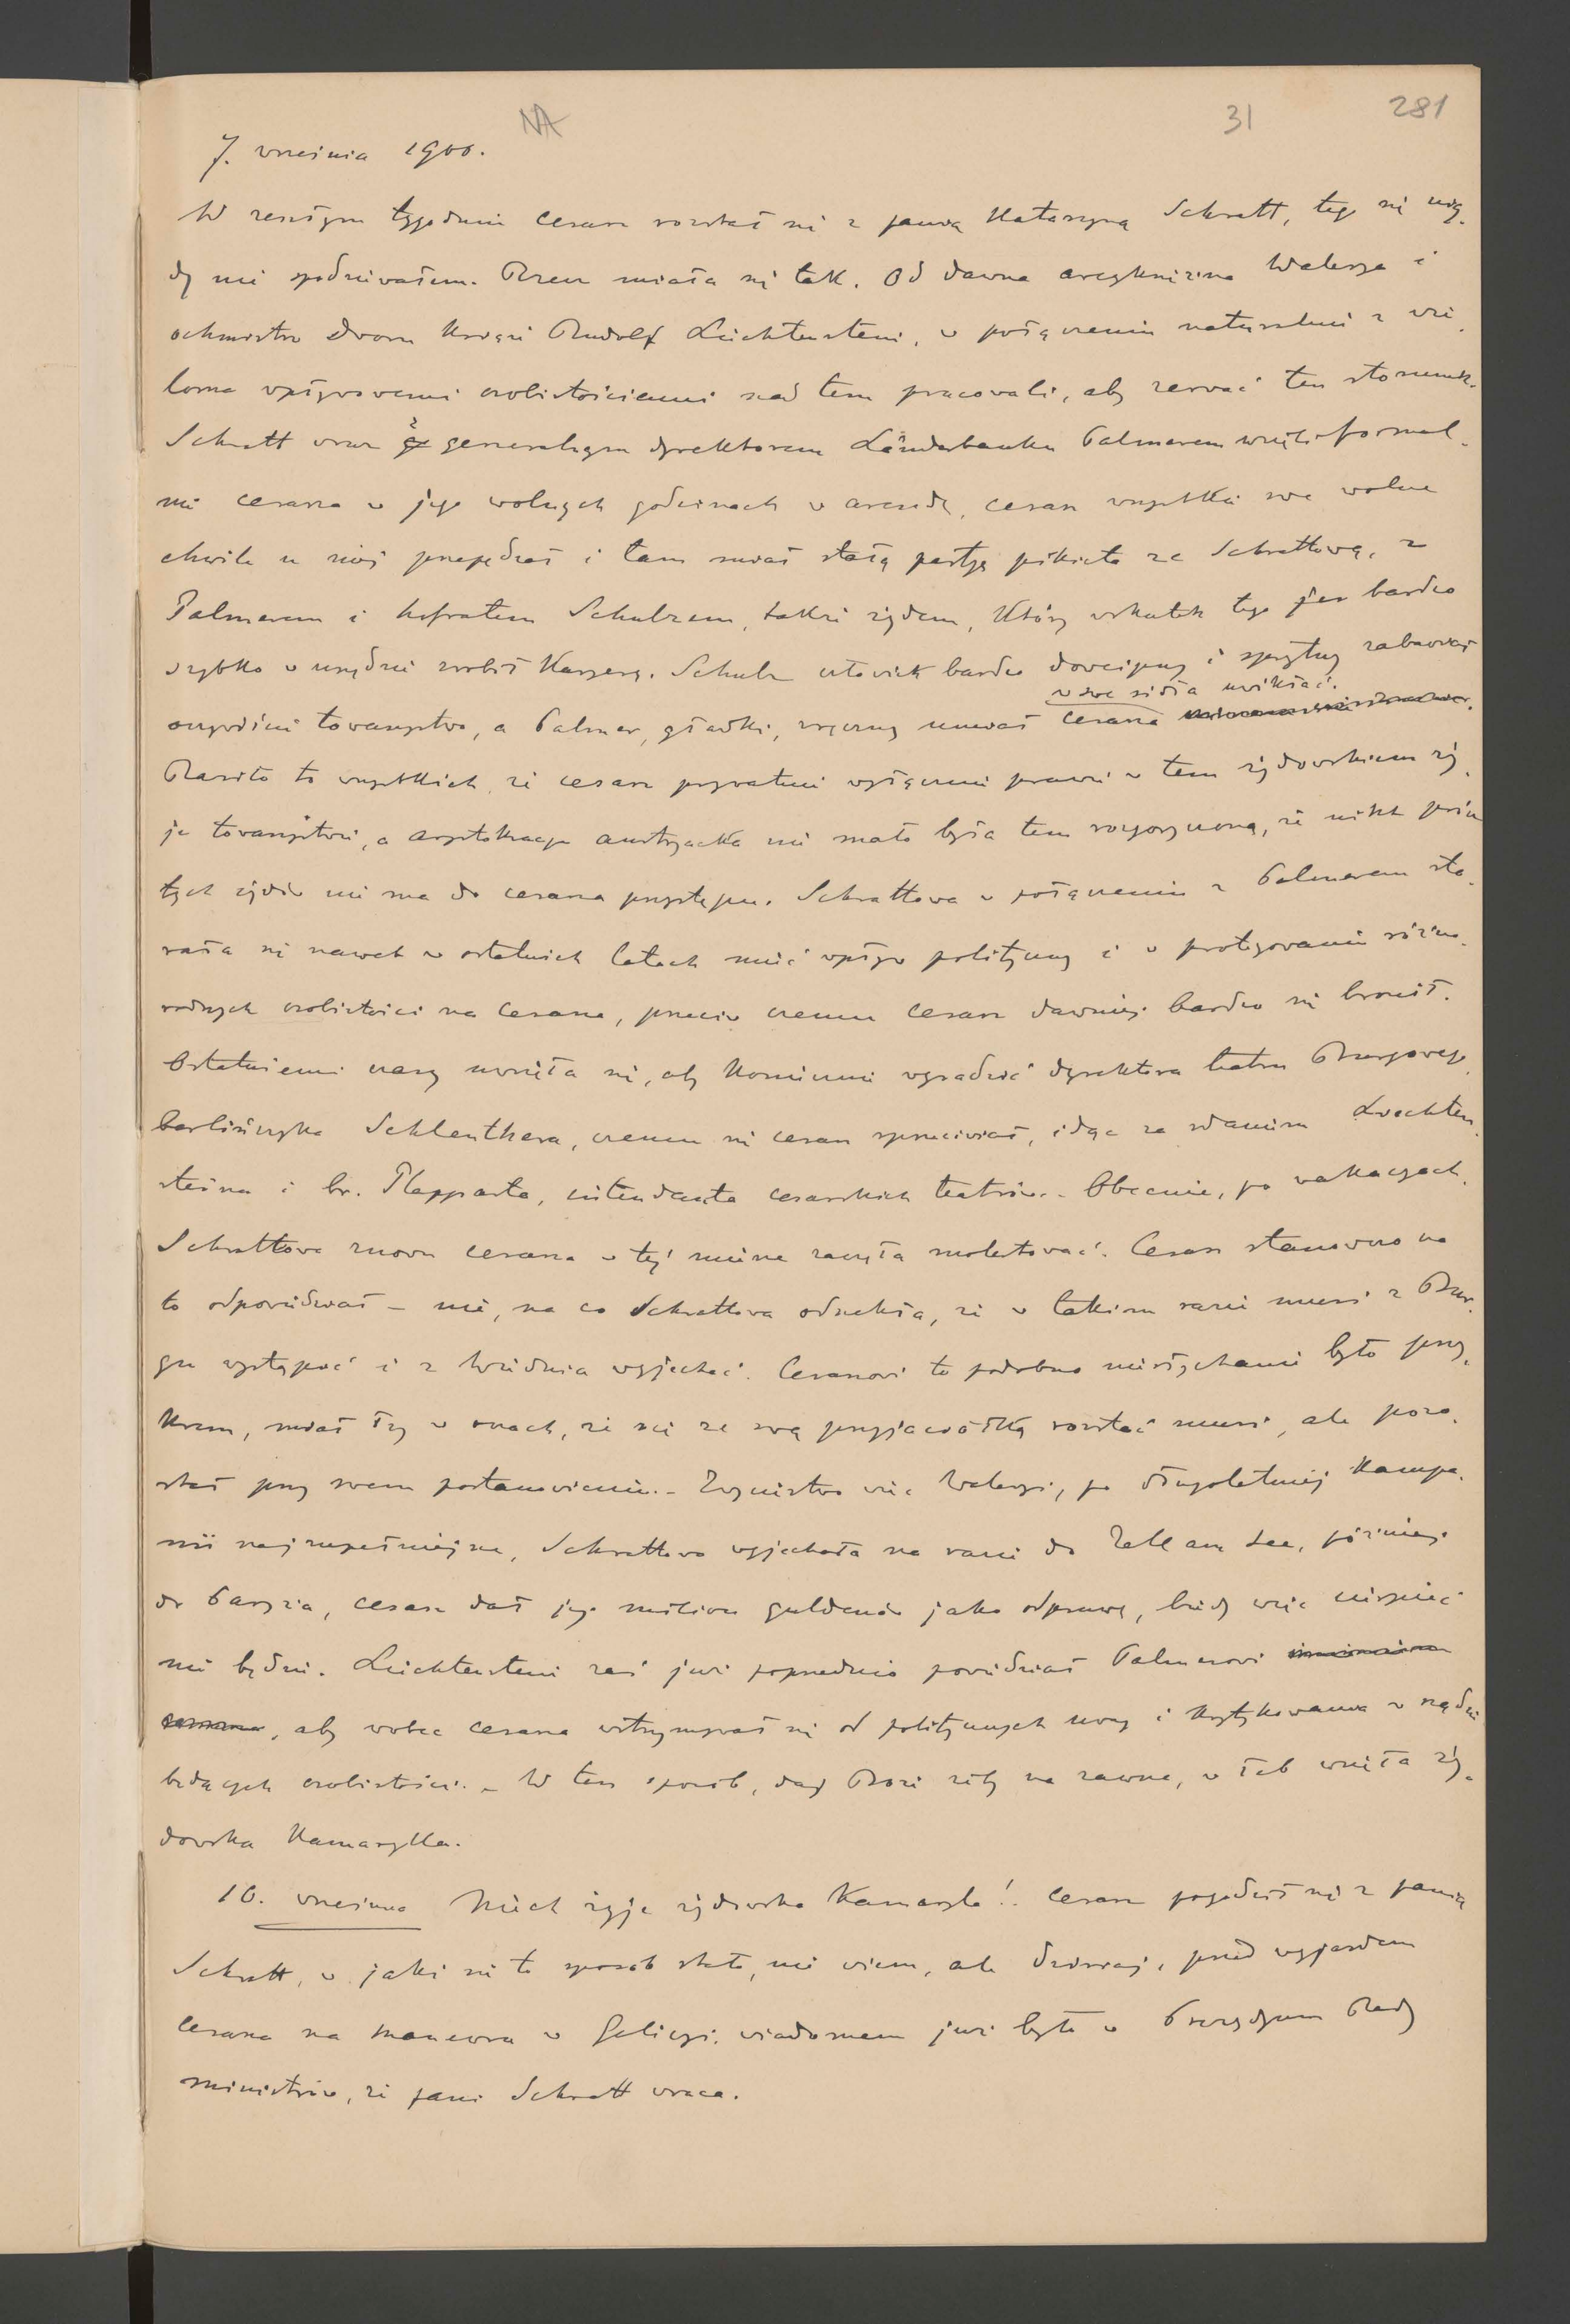 NA 31 281
7. września 1900.
W zeszłym tygodniu Cesarz rozstał się z panią Katarzyną Schratt, tego się nig-
dy nie spodziewałem. Rzecz miała się tak. Od dawna arcyksiężna Walerya i
ochmistrz dworu Książę Rudolf Liechtenstein, w połączeniu naturalnie z wie-
loma wpływowemi osobistościami nad tem pracowali, aby zerwać ten stosunek.
Schratt wraz z generalnym dyrektorem Länderbanku Palmerem wzięli formal-
nie cesarza w jego wolnych godzinach w arendę, cesarz wszystkie swe wolne
chwile u niej przepędzał i tam miał stałą partyę pikieta ze Schrattową, z
Palmerem i hofratem Schulzem, także żydem, który wskutek tego bardzo
szybko w urzędzie zrobił Karyerę. Schulz człowiek bardzo dowcipny i sprytny zabawiał
w swe sidła uwikłać.
oczywiście towarzystwo, a Palmer, gładki, zręczny umiał cesarza
Raziło to wszystkich, że cesarz prywatnie wyłącznie prawie w tem żydowskiem ży-
je towarzystwie, a arystokracya austryacka nie mało była tem rozgoryczoną, że nikt prócz
tych żydów nie ma do cesarza przystępu. Schrattowa w połączeniu z Palmerem sta-
rała się nawet w ostatnich latach mieć wpływ polityczny i w protegowaniu różno-
rodnych osobistości na Cesarza, przeciw czemu Cesarz dawniej bardzo się bronił.
Ostatniemi czasy uwzięła się, aby koniecznie wysadzić dyrektora teatru Burgowego,
berlińczyka Schlenthera, czemu się cesarz sprzeciwiał, idąc za zdaniem Liechten-
steina i br. Plapparta, intendanta cesarskich teatrów. - Obecnie, po wakacyach,
Schrattowa znowu cesarza w tej mierze zaczęła molestować. Cesarz stanowczo na
to odpowiedział - nie, na co Schrattowa odrzekła, że w takim razie musi z Bur-
gu wystąpić i z Wiednia wyjechać. Cesarzowi to podobno niesłychanie było przy-
krem, miał łzy w oczach, że się ze swą przyjaciółką rozstać musi, ale pozo-
stał przy swem postanowieniu. - Zwycięstwo więc Waleryi, po długoletniej kampa-
nii najzupełniejsze, Schrattowa wyjechała na razie do Zell am See, później
do Paryża, cesarz dał jej milion guldenów jako odprawę, biedy więc cierpieć
nie będzie. Liechtenstein zaś już poprzednio powiedział Palmerowi
, aby wobec cesarza wstrzymywał się od politycznych uwag i krytykowania w rządzie
będących osobistości. - W ten sposób, daj Boże żeby na zawsze, w łeb wzięła ży-
dowska Kamarylla.
10. września Niech żyje żydowska Kamaryla! Cesarz pogodził się z panią
Schratt, w jaki się to sposób stało, nie wiem, ale dzisiaj, przed wyjazdem
Cesarza na manewra w Galicyi, wiadomem już było w Prezydyum Rady
ministrów, że pani Schratt wraca.